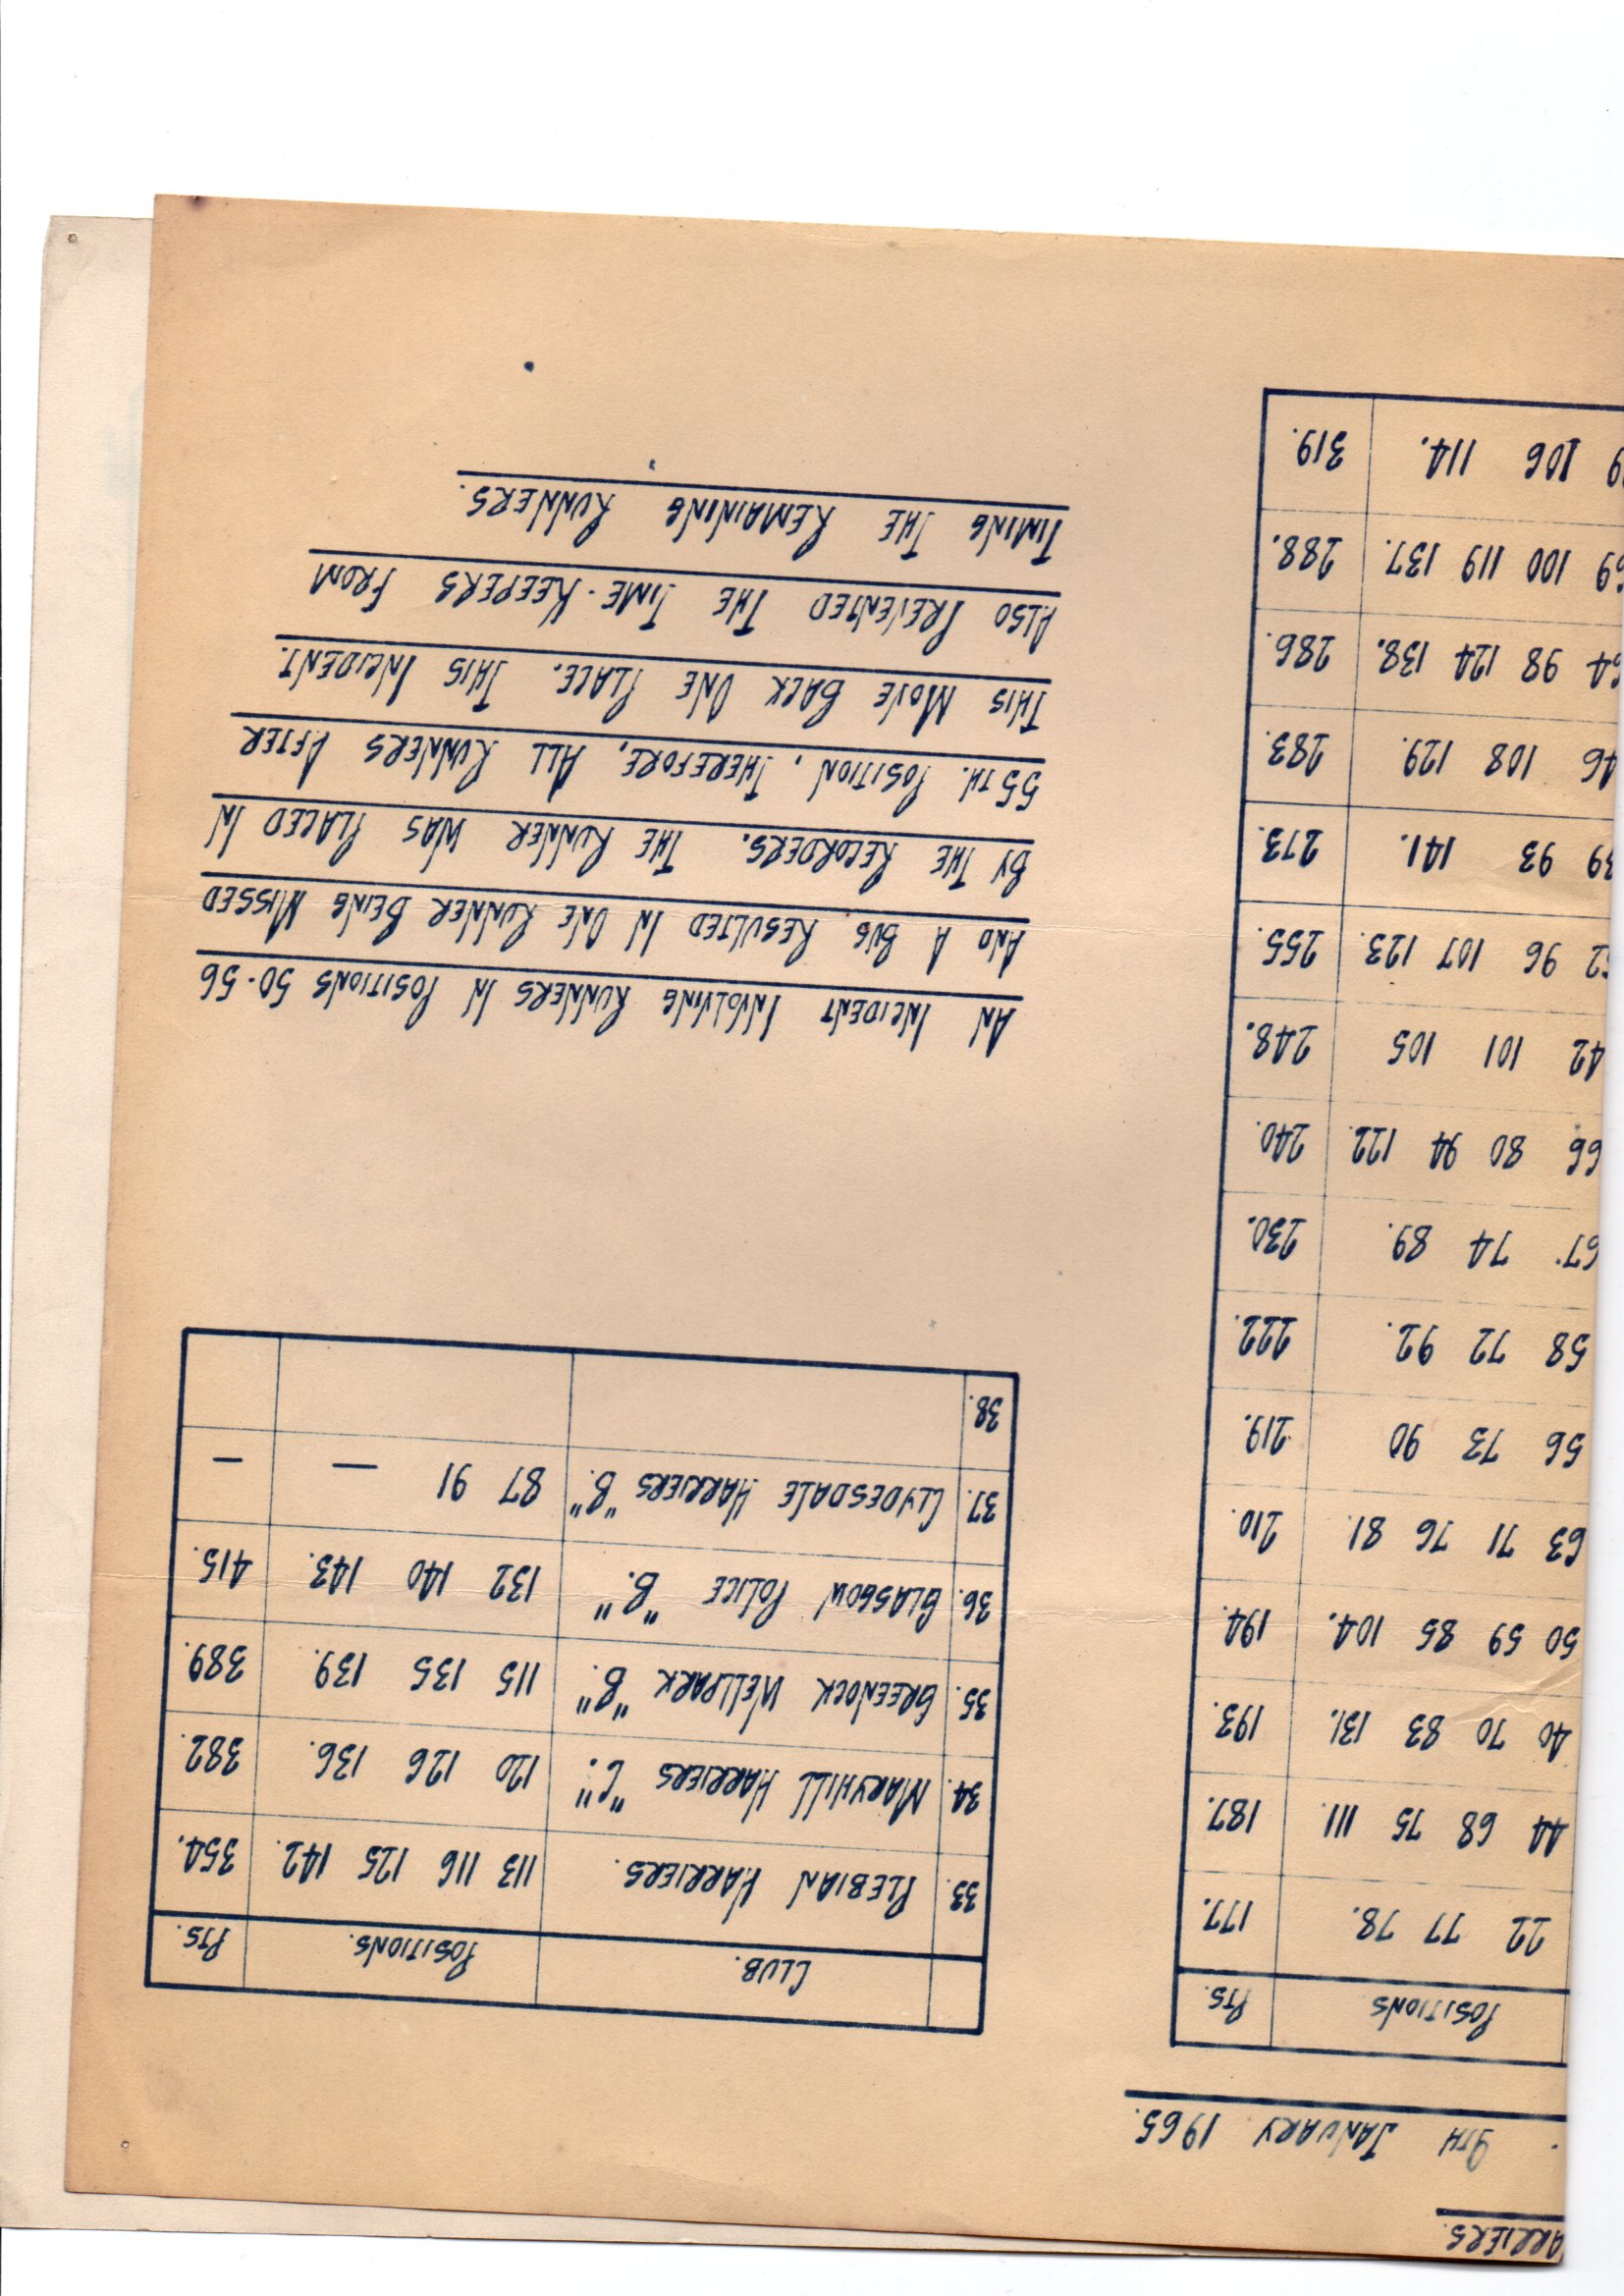 ARRIERS.
9TH JANUARY 1965.
POSITIONS PTS.
22 77 78. 177.
44 68 75 111. 187.
40 70 83 131. 193.
50 59 85 104. 194
63 71 76 81. 210.
56 73 90 219.
58 72 92. 222.
67. 74 89. 230.
66 80 94 122. 240.
42 101 105 248.
52 96 107 123. 255.
39 93 141. 273.
46 108 129. 283.
64 98 124 138. 286.
69 100 119 137. 288.
9 106 114. 319.
CLUB. POSITIONS. PTS.
33. PLEBIAN HARRIERS. 113 116 125 142. 354.
34. MARYHILL HARRIERS "C". 120 126 136. 382.
35. GREENOCK WELLPARK "B". 115 135 139. 389.
36. GLASGOW POLICE "B". 132 140 143. 415.
37. CLYDESDALE HARRIERS "B". 87 91 — —
38.
AN INCIDENT INVOLVING RUNNERS IN POSITIONS 50-56
AND A BUS RESULTED IN ONE RUNNER BEING MISSED
BY THE RECORDERS. THE RUNNER WAS PLACED IN
55TH. POSITION, THEREFORE, ALL RUNNERS AFTER
THIS MOVE BACK ONE PLACE. THIS INCIDENT.
ALSO PREVENTED THE TIME-KEEPERS FROM
TIMING THE REMAINING RUNNERS.